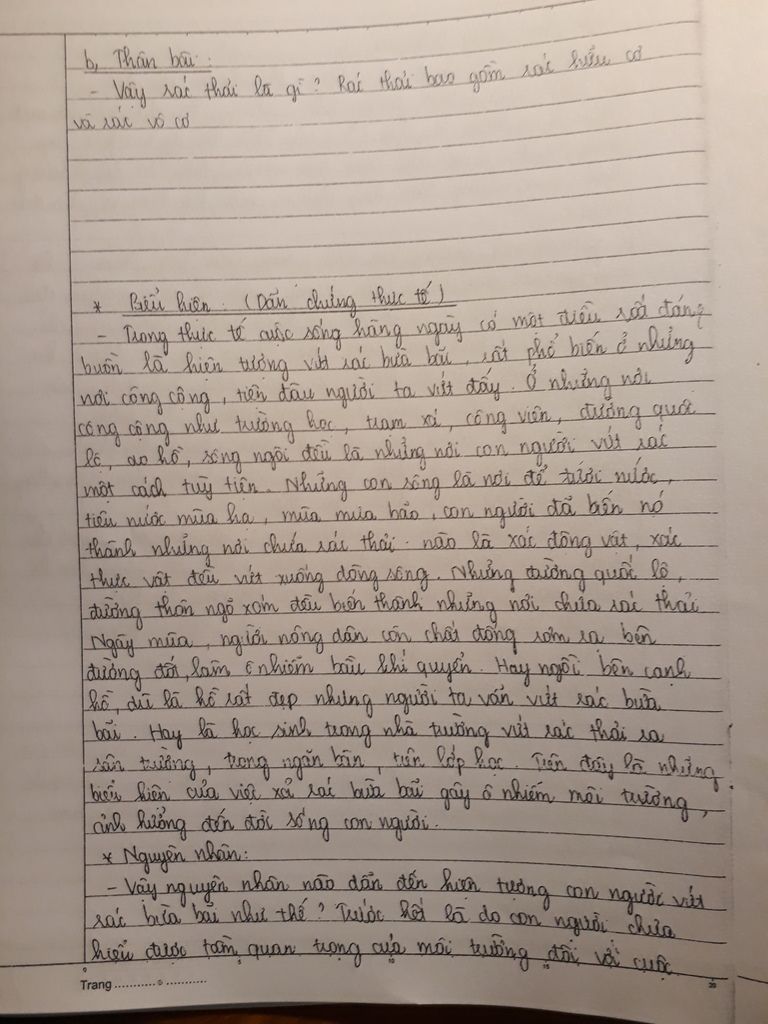 b, Thân bài:
- Vậy rác thải là gì? Rác thải bao gồm rác hữu cơ
và rác vô cơ
* Biểu hiện: (Dẫn chứng thực tế)
- Trong thực tế cuộc sống hằng ngày có một điều rất đáng
buồn là hiện tượng vứt rác bừa bãi, rất phổ biến ở những
nơi công cộng, tiện đâu người ta vứt đấy. Ở những nơi
công cộng như trường học, trạm xá, công viên, đường quốc
lộ, ao hồ, sông ngòi đều là những nơi con người vứt rác
một cách tùy tiện. Những con sông là nơi để tưới nước,
tiêu nước mùa hạ, mùa mưa bão, con người đã biến nó
thành những nơi chứa rác thải. nào là xác động vật, xác
thực vật đều vứt xuống dòng sông. Những đường quốc lộ,
đường thôn ngõ xóm đều biến thành những nơi chứa rác thải
Ngày mùa, người nông dân còn chất đống rơm rạ bên
đường đốt, làm ô nhiễm bầu khí quyển. Hay ngồi bên cạnh
hồ, dù là hồ rất đẹp nhưng người ta vẫn vứt rác bừa
bãi. Hay là học sinh trong nhà trường vứt rác thải ra
sân trường, trong ngăn bàn, trên lớp học. Trên đây là những
biểu hiện của việc xả rác bừa bãi gây ô nhiễm môi trường,
ảnh hưởng đến đời sống con người.
* Nguyên nhân:
- Vậy nguyên nhân nào dẫn đến hiện tượng con người vứt
rác bừa bãi như thế? Trước hết là do con người chưa
hiểu được tầm quan trọng của môi trường đối với cuộc
0 5 10 15 20
Trang ........... ...........